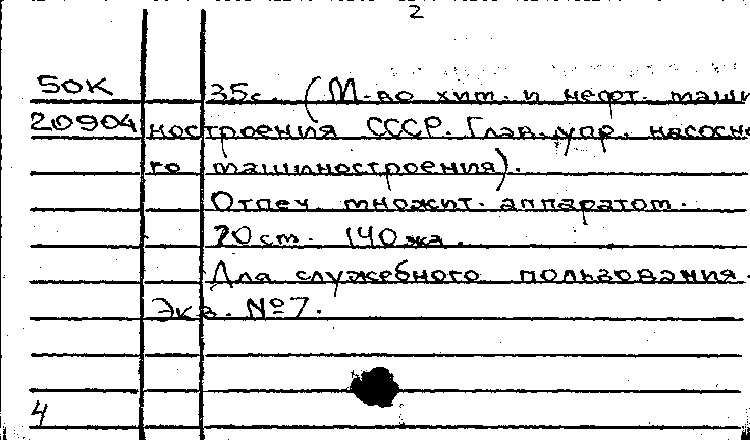 2
50К 35с. (М-во хим. и нефт. маши
20904 ностроения СССР. Глав. упр. насосно
го машиностроения).
Отпеч. множит. аппаратом.
70 см. 140 экз.
Для служебного пользования.
Экз. №7.
4